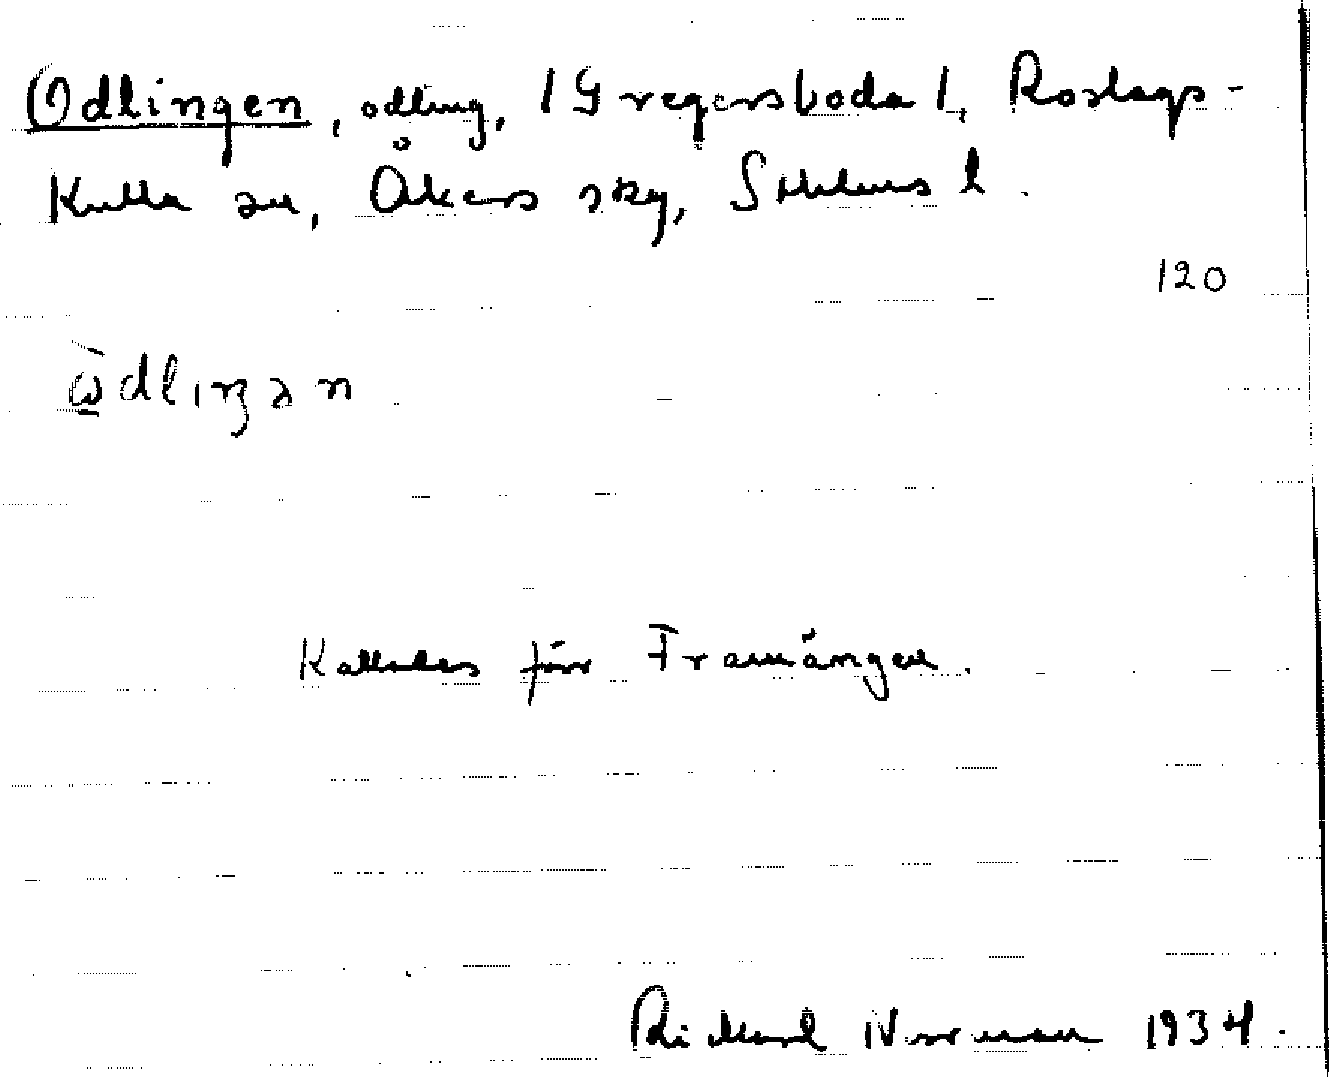 Odlingen, odling, 1 Gregersboda 1, Roslags-
Kulla sn, Åkers skg, Sthlms l.
120
Kallades förr Framängen.
Rickard Norman 1934.